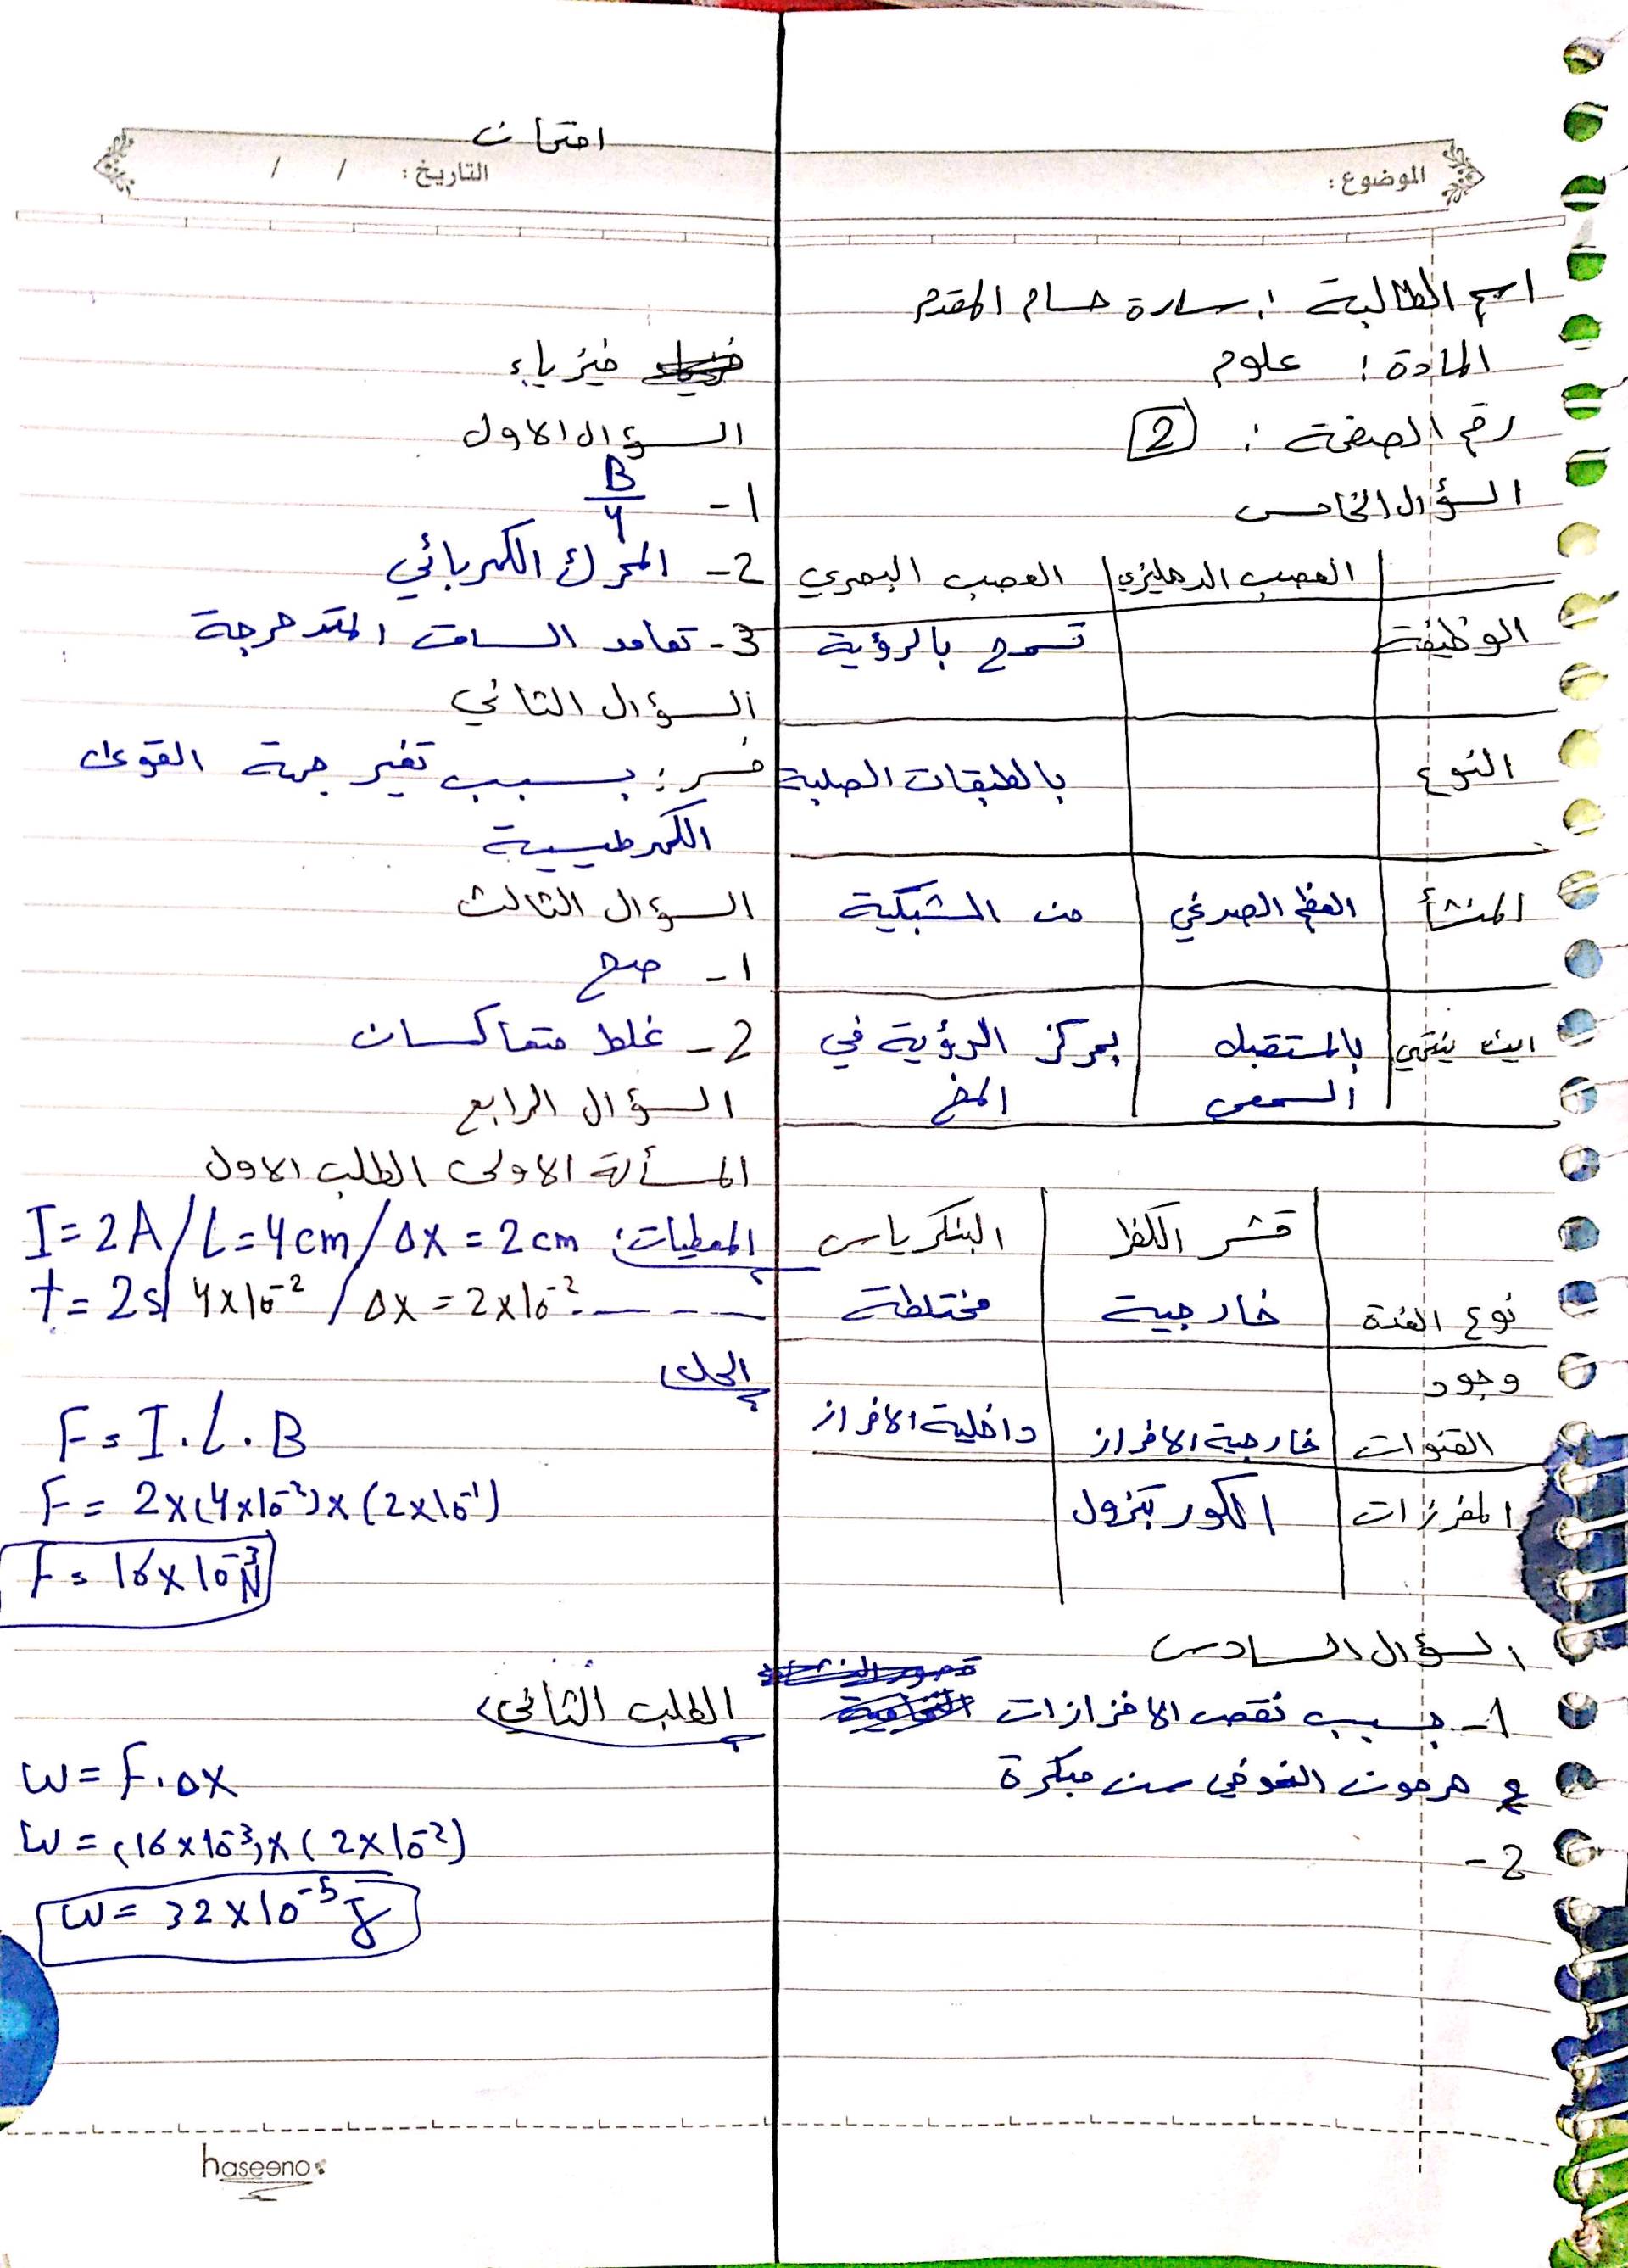 امتحان
الموضوع:
التاريخ: / /
اسم الطالبة : سارة حسام المقدم
المادة : علوم
رقم الصفحة : 2
السؤال الخامس
العصب الدهليزي العصب البصري
الوظيفة تسمح بالرؤية
النوع بالطبقات الصلبة
المنشأ العظم الصدغي من الشبكية
اين ينتهي بالمستقبل بمركز الرؤية في
السمعي المخ
قشر الكظر البنكرياس
نوع الغدة خارجية مختلطة
وجود
القنوات خارجية الافراز داخلية الافراز
المفرزات الكورتيزول
السؤال السادس
1- بسبب نقص الافرازات
هرمون النمو في سن مبكرة
2-
فيزياء
السؤال الاول
1- B/4
2- المحرك الكهربائي
3- تعامد الساق المتدحرجة
السؤال الثاني
فسر : بسبب تغير جهة القوى
الكهرطيسية
السؤال الثالث
1- صح
2- غلط متعاكسان
السؤال الرابع
المسألة الاولى الطلب الاول
المعطيات: I = 2A / L = 4cm / Δx = 2cm
t = 2s / 4×10⁻² / Δx = 2×10⁻²
الحل
F = I . L . B
F = 2×(4×10⁻²)×(2×10⁻¹)
F = 16×10⁻³ N
الطلب الثاني
W = F . Δx
W = (16×10⁻³)×(2×10⁻²)
W = 32×10⁻⁵ J
haseeno